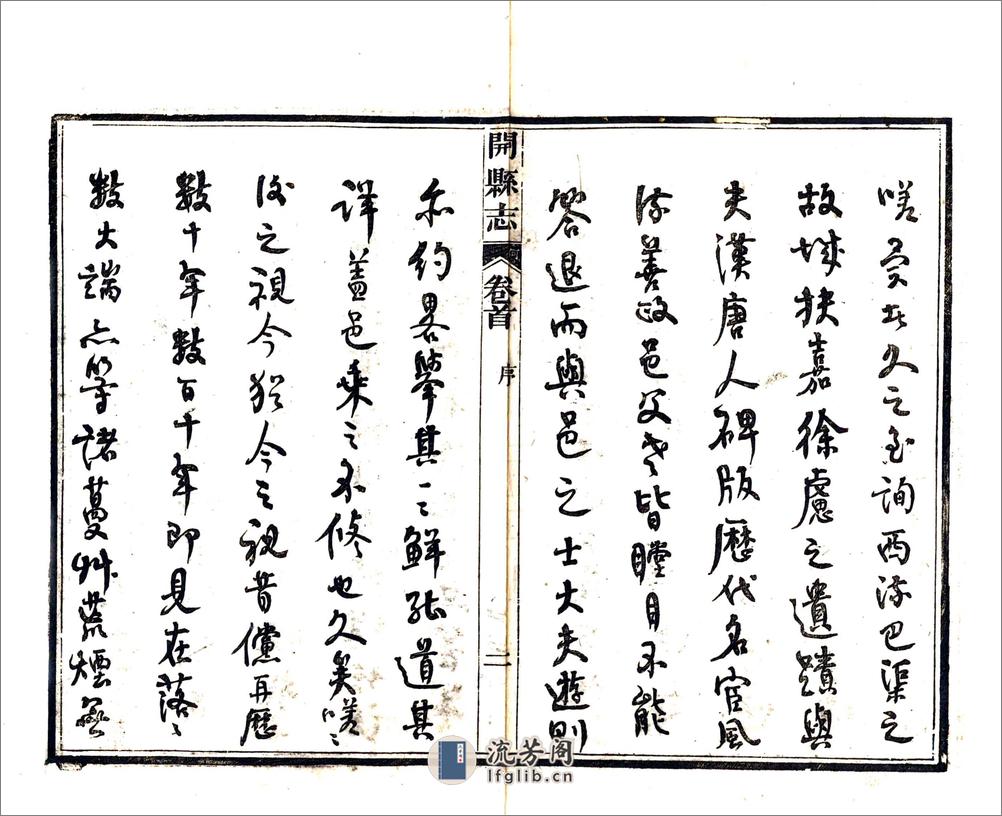 嗟者久之至詢西流巴渠之
故城扶嘉徐慮之遺蹟與
夫漢唐人碑版歷代名宦風
流善政邑父老皆瞠目不能
答退而與邑之士大夫遊則
開縣志 卷首 序 二
亦約畧舉其一二鮮能道其
詳蓋邑乘之不修也久矣嗟〻
後之視今猶今之視昔儻再歷
數十年數百千年即見在落〻
數大端亦等諸蔓艸荒煙無
流芳阁
lfglib.cn